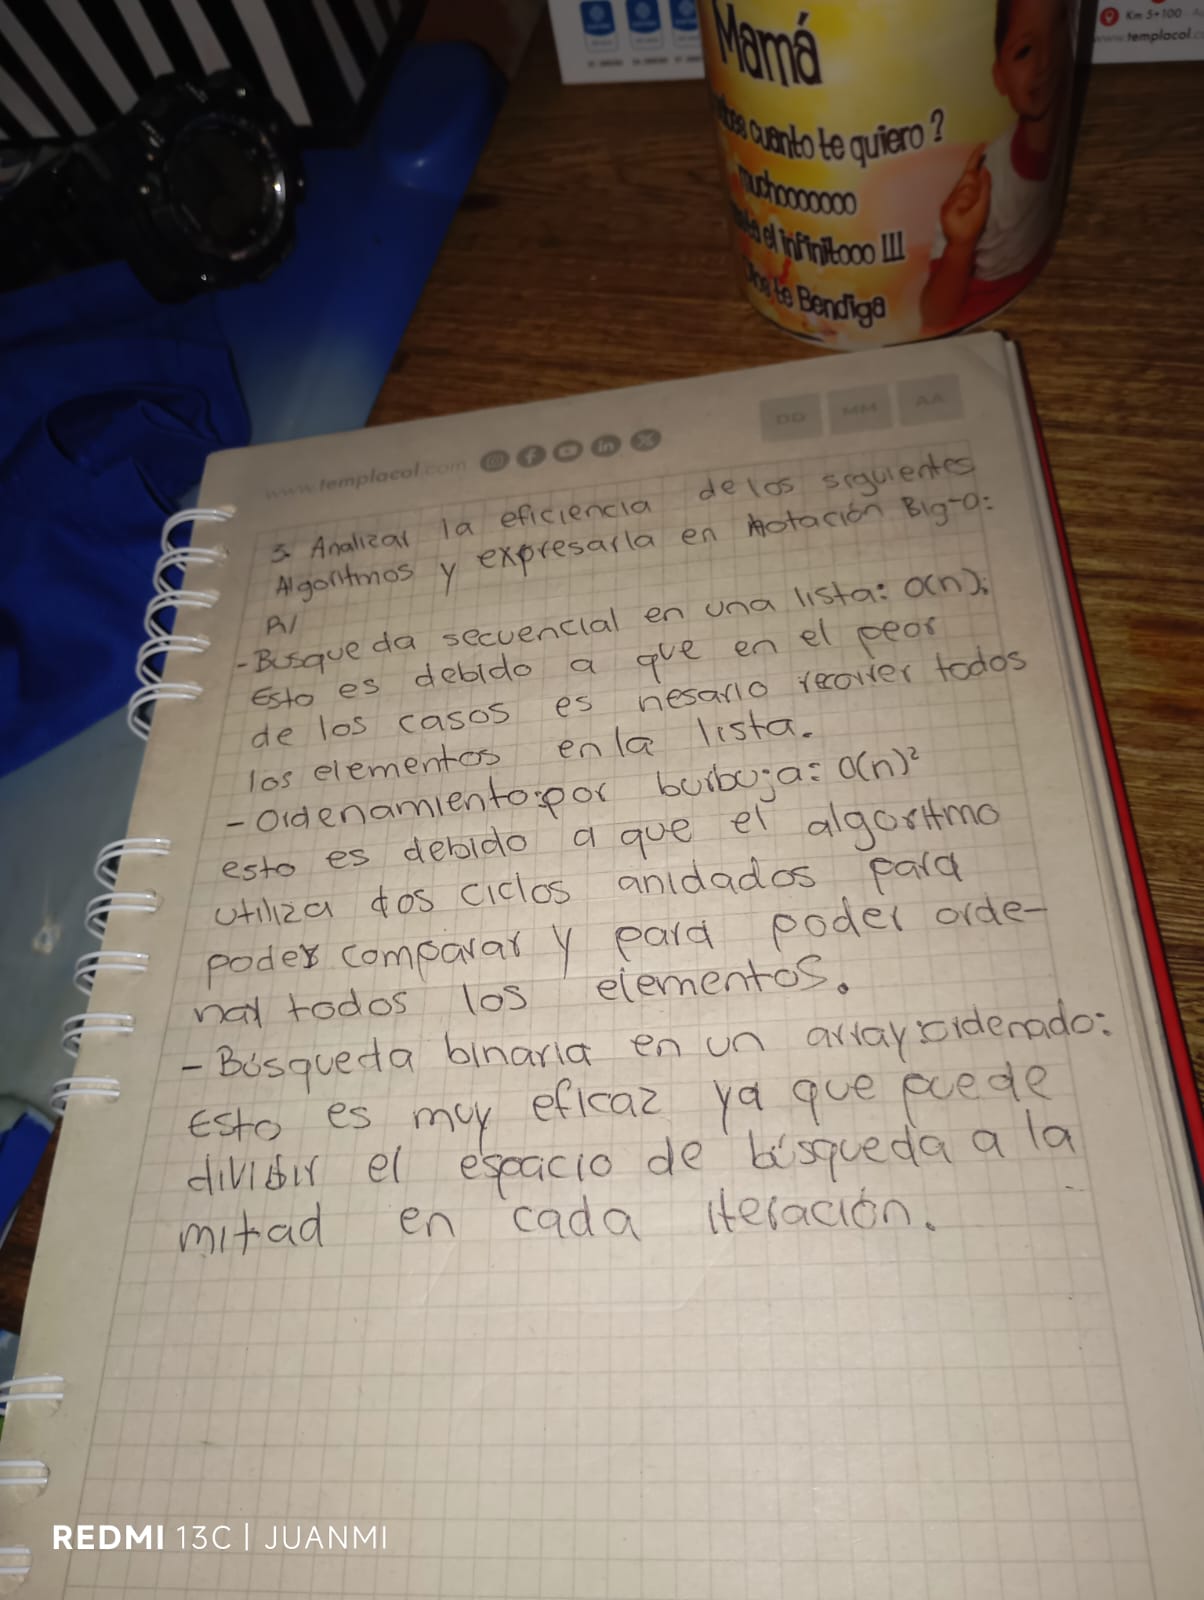 Mamá
cuanto te quiero ?
muchooooooo
el infinitooo !!!
te Bendiga
Km 5+100
www.templacol.co
DD MM AA
www.templacol.com
3. Analizar la eficiencia de los siguientes
Algoritmos y expresarla en Notación Big-O:
R/
- Busqueda secuencial en una lista: O(n);
Esto es debido a que en el peor
de los casos es nesario recorrer todos
los elementos en la lista.
- Ordenamiento por burbuja: O(n)²
esto es debido a que el algoritmo
utiliza dos ciclos anidados para
poder comparar y para poder orde-
nar todos los elementos.
- Búsqueda binaria en un array ordenado:
Esto es muy eficaz ya que puede
dividir el espacio de búsqueda a la
mitad en cada iteración.
REDMI 13C | JUANMI